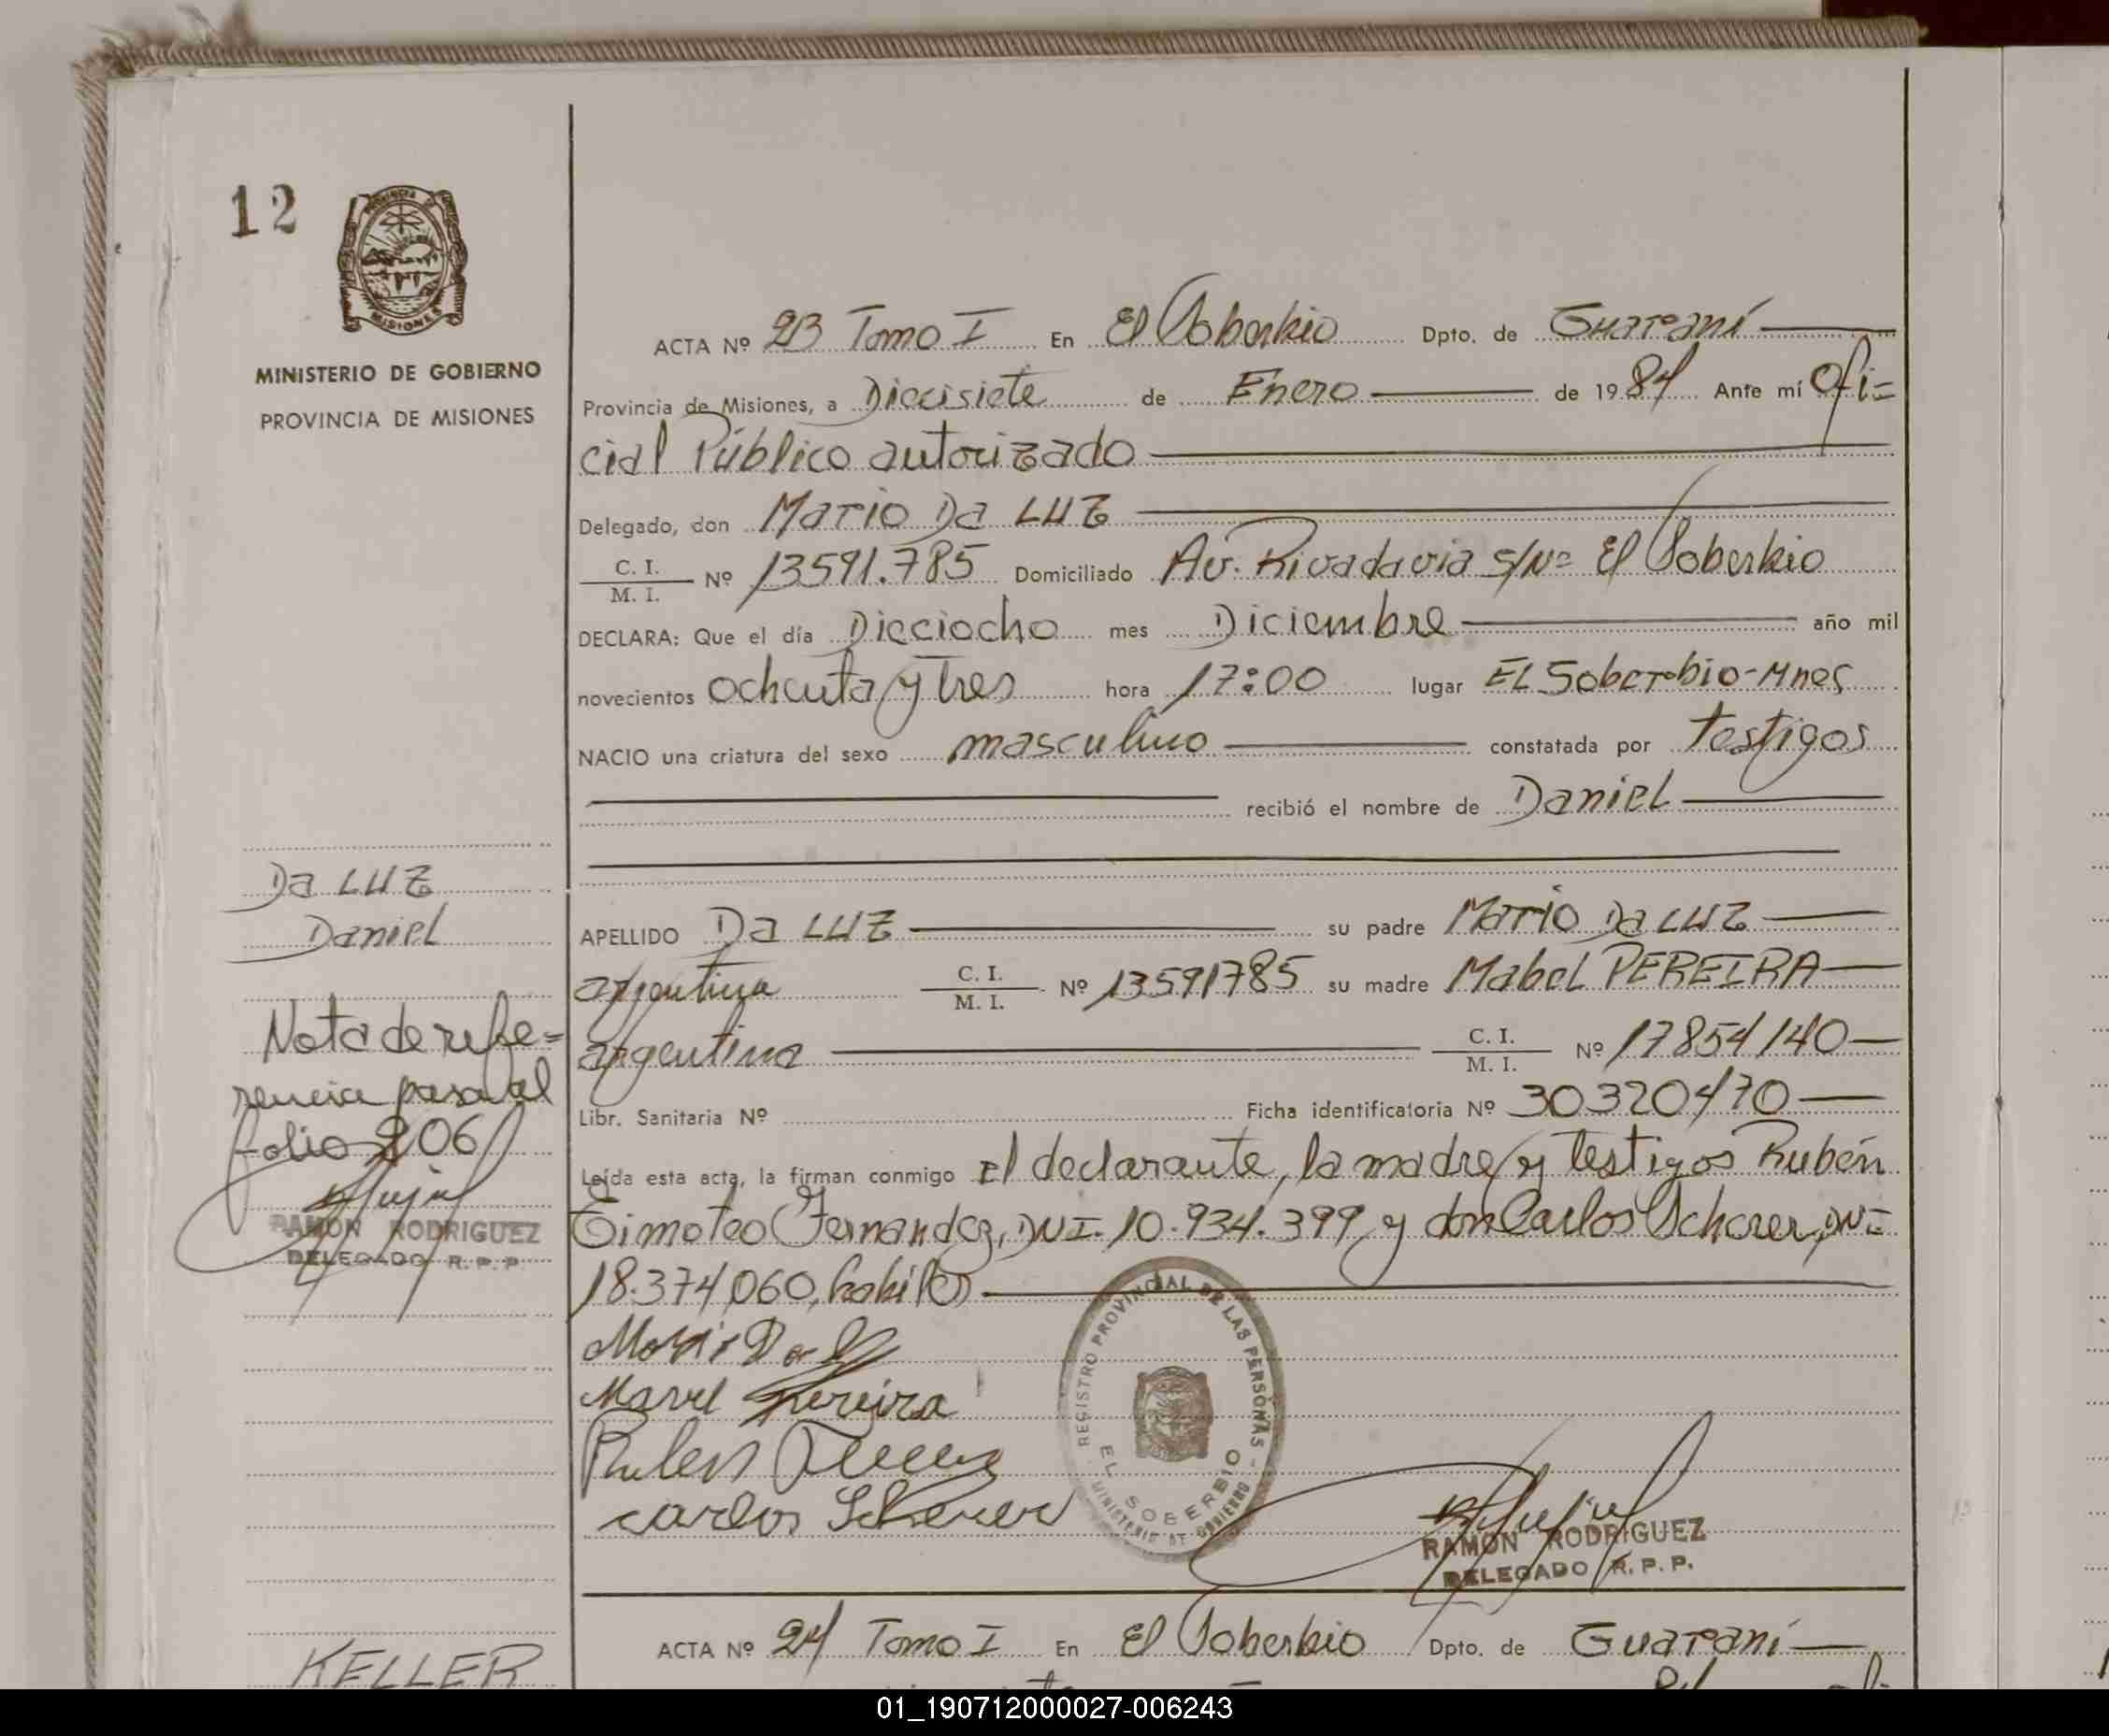 12
MINISTERIO DE GOBIERNO
PROVINCIA DE MISIONES
ACTA Nº 23 Tomo I En El Soberbio Dpto. de Guaraní
Provincia de Misiones, a Diecisiete de Enero de 1984 Ante mí Ofi=
cial Público autorizado
Delegado, don Mario Da LUZ
C. I.
M. I. Nº 13591.785 Domiciliado Av. Rivadavia S/Nº El Soberbio
DECLARA: Que el día Dieciocho mes Diciembre año mil
novecientos ochenta y tres hora 17:00 lugar EL Soberbio-Mnes
NACIO una criatura del sexo masculino constatada por testigos
recibió el nombre de Daniel
Da LUZ
Daniel
APELLIDO Da LUZ su padre Mario Da LUZ
argentina C. I. M. I. Nº 13591785 su madre Mabel PEREIRA
argentina C. I. M. I. Nº 17854140
Libr. Sanitaria Nº Ficha identificatoria Nº 30320470
Leída esta acta, la firman conmigo El declarante, la madre y testigos Rubén
Timoteo Fernandez, DNI. 10.934.399 y don Carlos Scherer, DNI
18.374,060, hábiles
Nota de refe=
rencia pasa al
folio 206
RAMON RODRIGUEZ
DELEGADO R. P. P.
Mario Da
Marvel Pereira
Ruben
carlos Scherer
REGISTRO PROVINCIAL DE LAS PERSONAS
EL SOBERBIO
MINISTERIO DE GOBIERNO
RAMON RODRIGUEZ
DELEGADO R. P. P.
ACTA Nº 24 Tomo I En El Soberbio Dpto. de Guaraní
KELLER
01_190712000027-006243